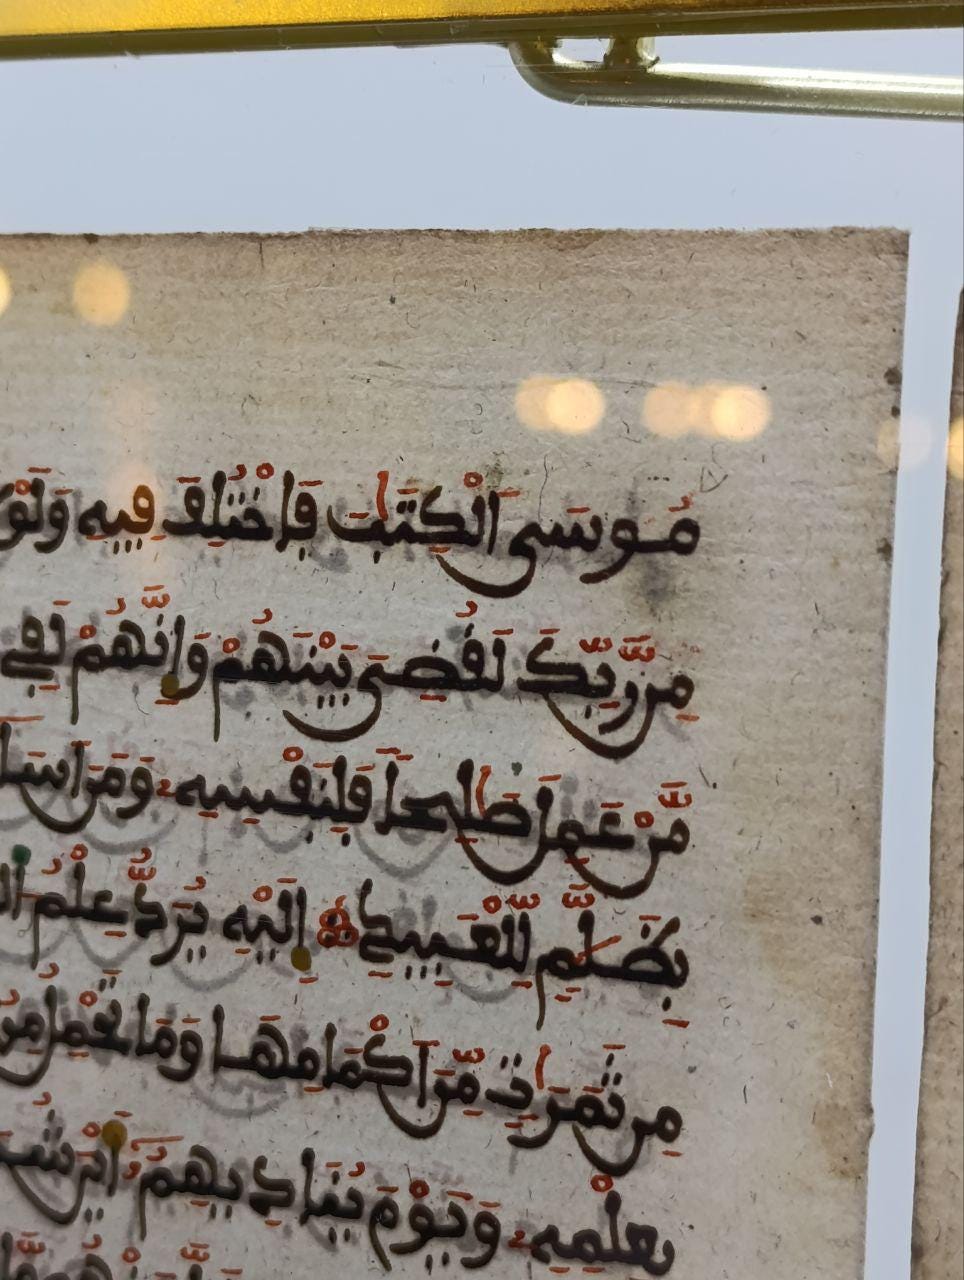 مُوسَى ا۬لْكِتَٰبَ فَاخْتُلِفَ فِيهِ وَلَوْ
مِن رَّبِّكَ لَقُضِيَ بَيْنَهُمْ وَإِنَّهُمْ لَفِے
مَّنْ عَمِلَ صَٰلِحاً فَلِنَفْسِهِ وَمَنَ اَسَا
بِظَلَّٰمٍ لِّلْعَبِيدِ إِلَيْهِ يُرَدُّ عِلْمُ ا۬ل
مِن ثَمَرَٰتٍ مِّنَ اَكْمَامِهَا وَمَا تَحْمِلُ مِنُ
بِعِلْمِهِ وَيَوْمَ يُنَادِيهِمُ أَيْنَ شُ